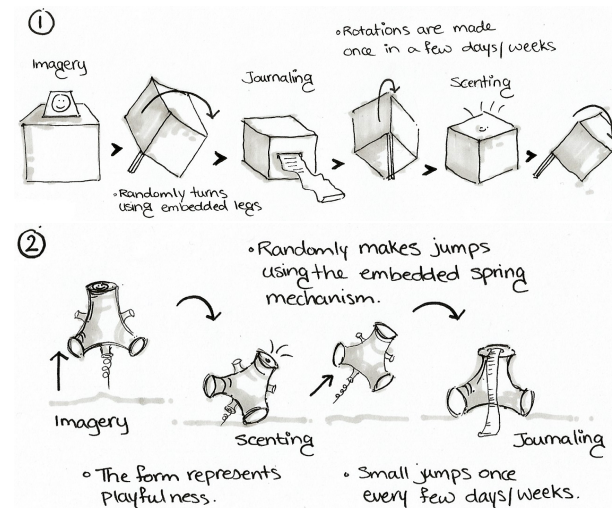 1
• Rotations are made
once in a few days/weeks
Imagery
Journaling
Scenting
• Randomly turns
using embedded legs
2
• Randomly makes jumps
using the embedded spring
mechanism.
Imagery
Scenting
Journaling
• The form represents
Playfulness.
• Small jumps once
every few days/weeks.